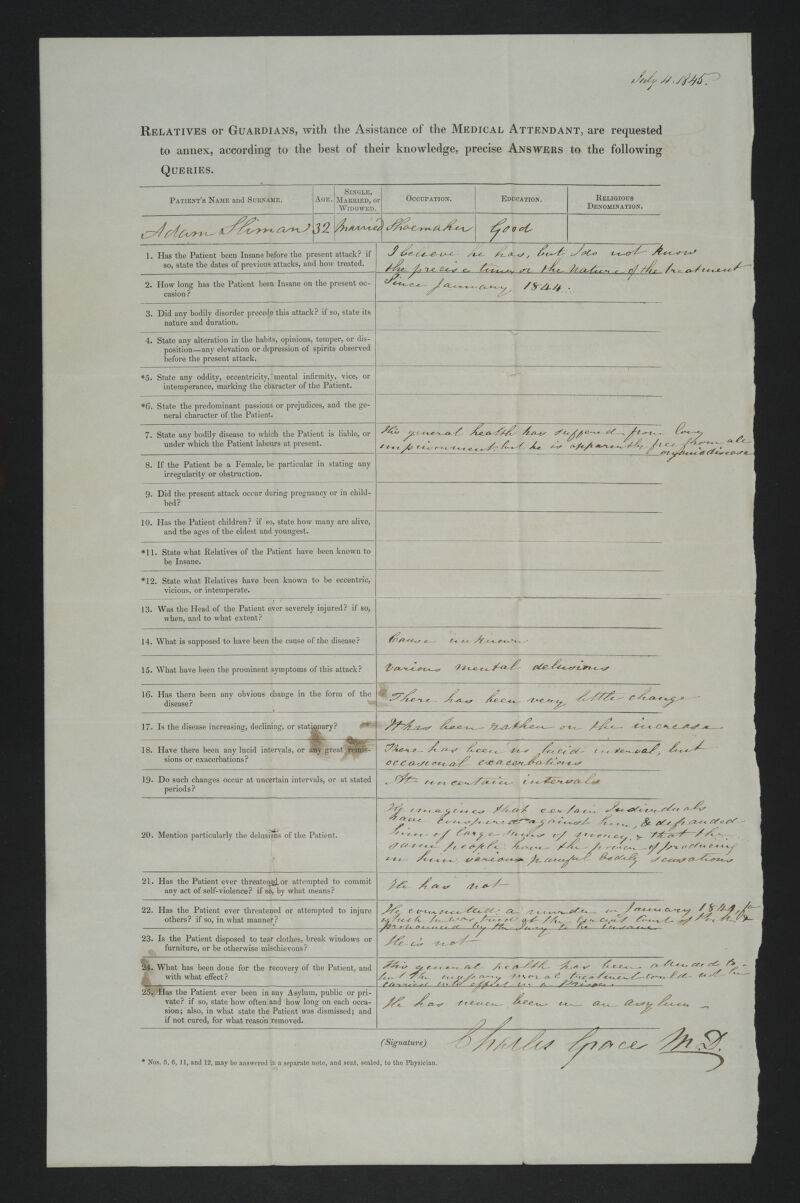 July 4. 1845.
RELATIVES or GUARDIANS, with the Asistance of the MEDICAL ATTENDANT, are requested
to annex, according to the best of their knowledge, precise ANSWERS to the following
QUERIES.
PATIENT'S NAME and SURNAME. AGE. SINGLE, MARRIED, or WIDOWED. OCCUPATION. EDUCATION. RELIGIOUS DENOMINATION.
Adam Sliman 32 Married Shoemaker Good
1. Has the Patient been Insane before the present attack? if
so, state the dates of previous attacks, and how treated.
I believe he has, but I do not know
the precise times or the nature of the treatment
2. How long has the Patient been Insane on the present oc-
casion?
Since January, 1844.
3. Did any bodily disorder precede this attack? if so, state its
nature and duration.
4. State any alteration in the habits, opinions, temper, or dis-
position—any elevation or depression of spirits observed
before the present attack.
*5. State any oddity, eccentricity, mental infirmity, vice, or
intemperance, marking the character of the Patient.
*6. State the predominant passions or prejudices, and the ge-
neral character of the Patient.
7. State any bodily disease to which the Patient is liable, or
under which the Patient labours at present.
His general health has suffered from long
imprisonment, but he is apparently free from all
organic disease
8. If the Patient be a Female, be particular in stating any
irregularity or obstruction.
9. Did the present attack occur during pregnancy or in child-
bed?
10. Has the Patient children? if so, state how many are alive,
and the ages of the eldest and youngest.
*11. State what Relatives of the Patient have been known to
be Insane.
*12. State what Relatives have been known to be eccentric,
vicious, or intemperate.
13. Was the Head of the Patient ever severely injured? if so,
when, and to what extent?
14. What is supposed to have been the cause of the disease?
Cause unknown
15. What have been the prominent symptoms of this attack?
Various mental delusions
16. Has there been any obvious change in the form of the
disease?
There has been very little change
17. Is the disease increasing, declining, or stationary?
It has been rather on the increase
18. Have there been any lucid intervals, or any great remis-
sions or exacerbations?
There has been no lucid interval, but
occasional exacerbations
19. Do such changes occur at uncertain intervals, or at stated
periods?
At uncertain intervals
20. Mention particularly the delusions of the Patient.
He imagines that certain Individuals
have conspired against him, & defrauded
him of large sums of money, & that the
same people have the power of producing
in him various painful bodily sensations
21. Has the Patient ever threatened or attempted to commit
any act of self-violence? if so, by what means?
He has not
22. Has the Patient ever threatened or attempted to injure
others? if so, in what manner?
He committed a murder in January 1844, for
which he was tried at the Court of &
pronounced by the Jury to be insane
23. Is the Patient disposed to tear clothes, break windows or
furniture, or be otherwise mischievous?
He is not
24. What has been done for the recovery of the Patient, and
with what effect?
His general health has been attended to,
but the necessary moral treatment could not be
carried into effect in a Prison
25. Has the Patient ever been in any Asylum, public or pri-
vate? if so, state how often and how long on each occa-
sion; also, in what state the Patient was dismissed; and
if not cured, for what reason removed.
He has never been in an asylum
(Signature) Charles Graces M.D.
* Nos. 5, 6, 11, and 12, may be answered in a separate note, and sent, sealed, to the Physician.